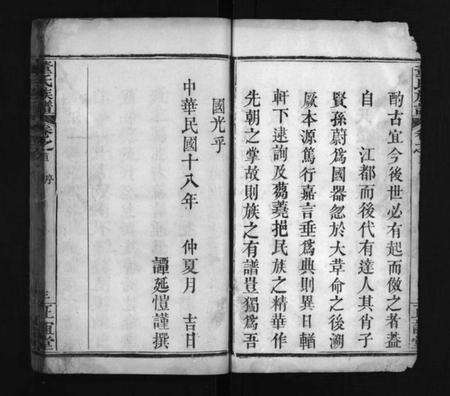 酌古宜今後世必有起而倣之者蓋
自 江都而後代有達人其肖子
賢孫蔚爲國器忽於大革命之後溯
厥本源篤行嘉言垂爲典則異日輶
軒下逮詢及蒭蕘挹民族之精華作
先朝之掌故則族之有譜豈獨爲吾
國光乎
中華民國十八年 仲夏月 吉日
譚延愷謹撰
董氏族譜 卷之首 序
三正直堂